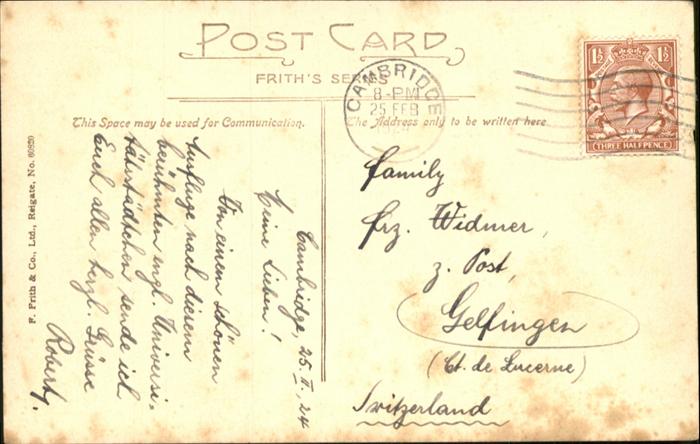 POST CARD
FRITH'S SERIES
This Space may be used for Communication.
The Address only to be written here.
CAMBRIDGE
8-PM
25 FEB
1½ 1½
THREE HALFPENCE
F. Frith & Co., Ltd., Reigate, No. 60820
Cambridge, 25. II. 24
Meine Lieben!
Von einem schönen
Ausfluge nach diesem
berühmten engl. Universi-
tätsstädtchen sende ich
Euch allen herzl. Grüsse
Robert.
Family
Frz. Widmer,
z. Post,
Gelfingen
(Ct. de Lucerne)
Switzerland